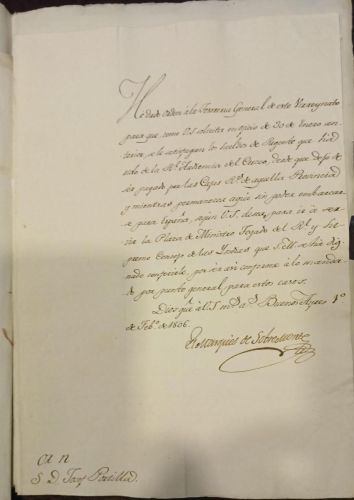 He dado orden á la Tesoreria General de este Virreynato
para que como V.S. solicita en oficio de 30 de Enero an-
terior, se le satisfagan los sueldos de Regente que há
sido de la Rl. Audiencia del Cuzco, desde que dejó de
ser pagado por las Cajas Rs. de aquella Provincia
y mientras permanezca aqui sin poder embarcar-
se para España, segun V.S. desea, para ir á ser-
vir la Plaza de Ministro Togado del Rl. y Su-
premo Consejo de las Yndias que S.M. se há dig-
nado conferirle, por ser asi conforme á lo manda-
do por punto general, para estos casos.
Dios gue. á V.S. ms. as. Buenos Ayres 1º
de Febº. de 1806.
El Marques de Sobremonte
S. D. Josef Portilla.